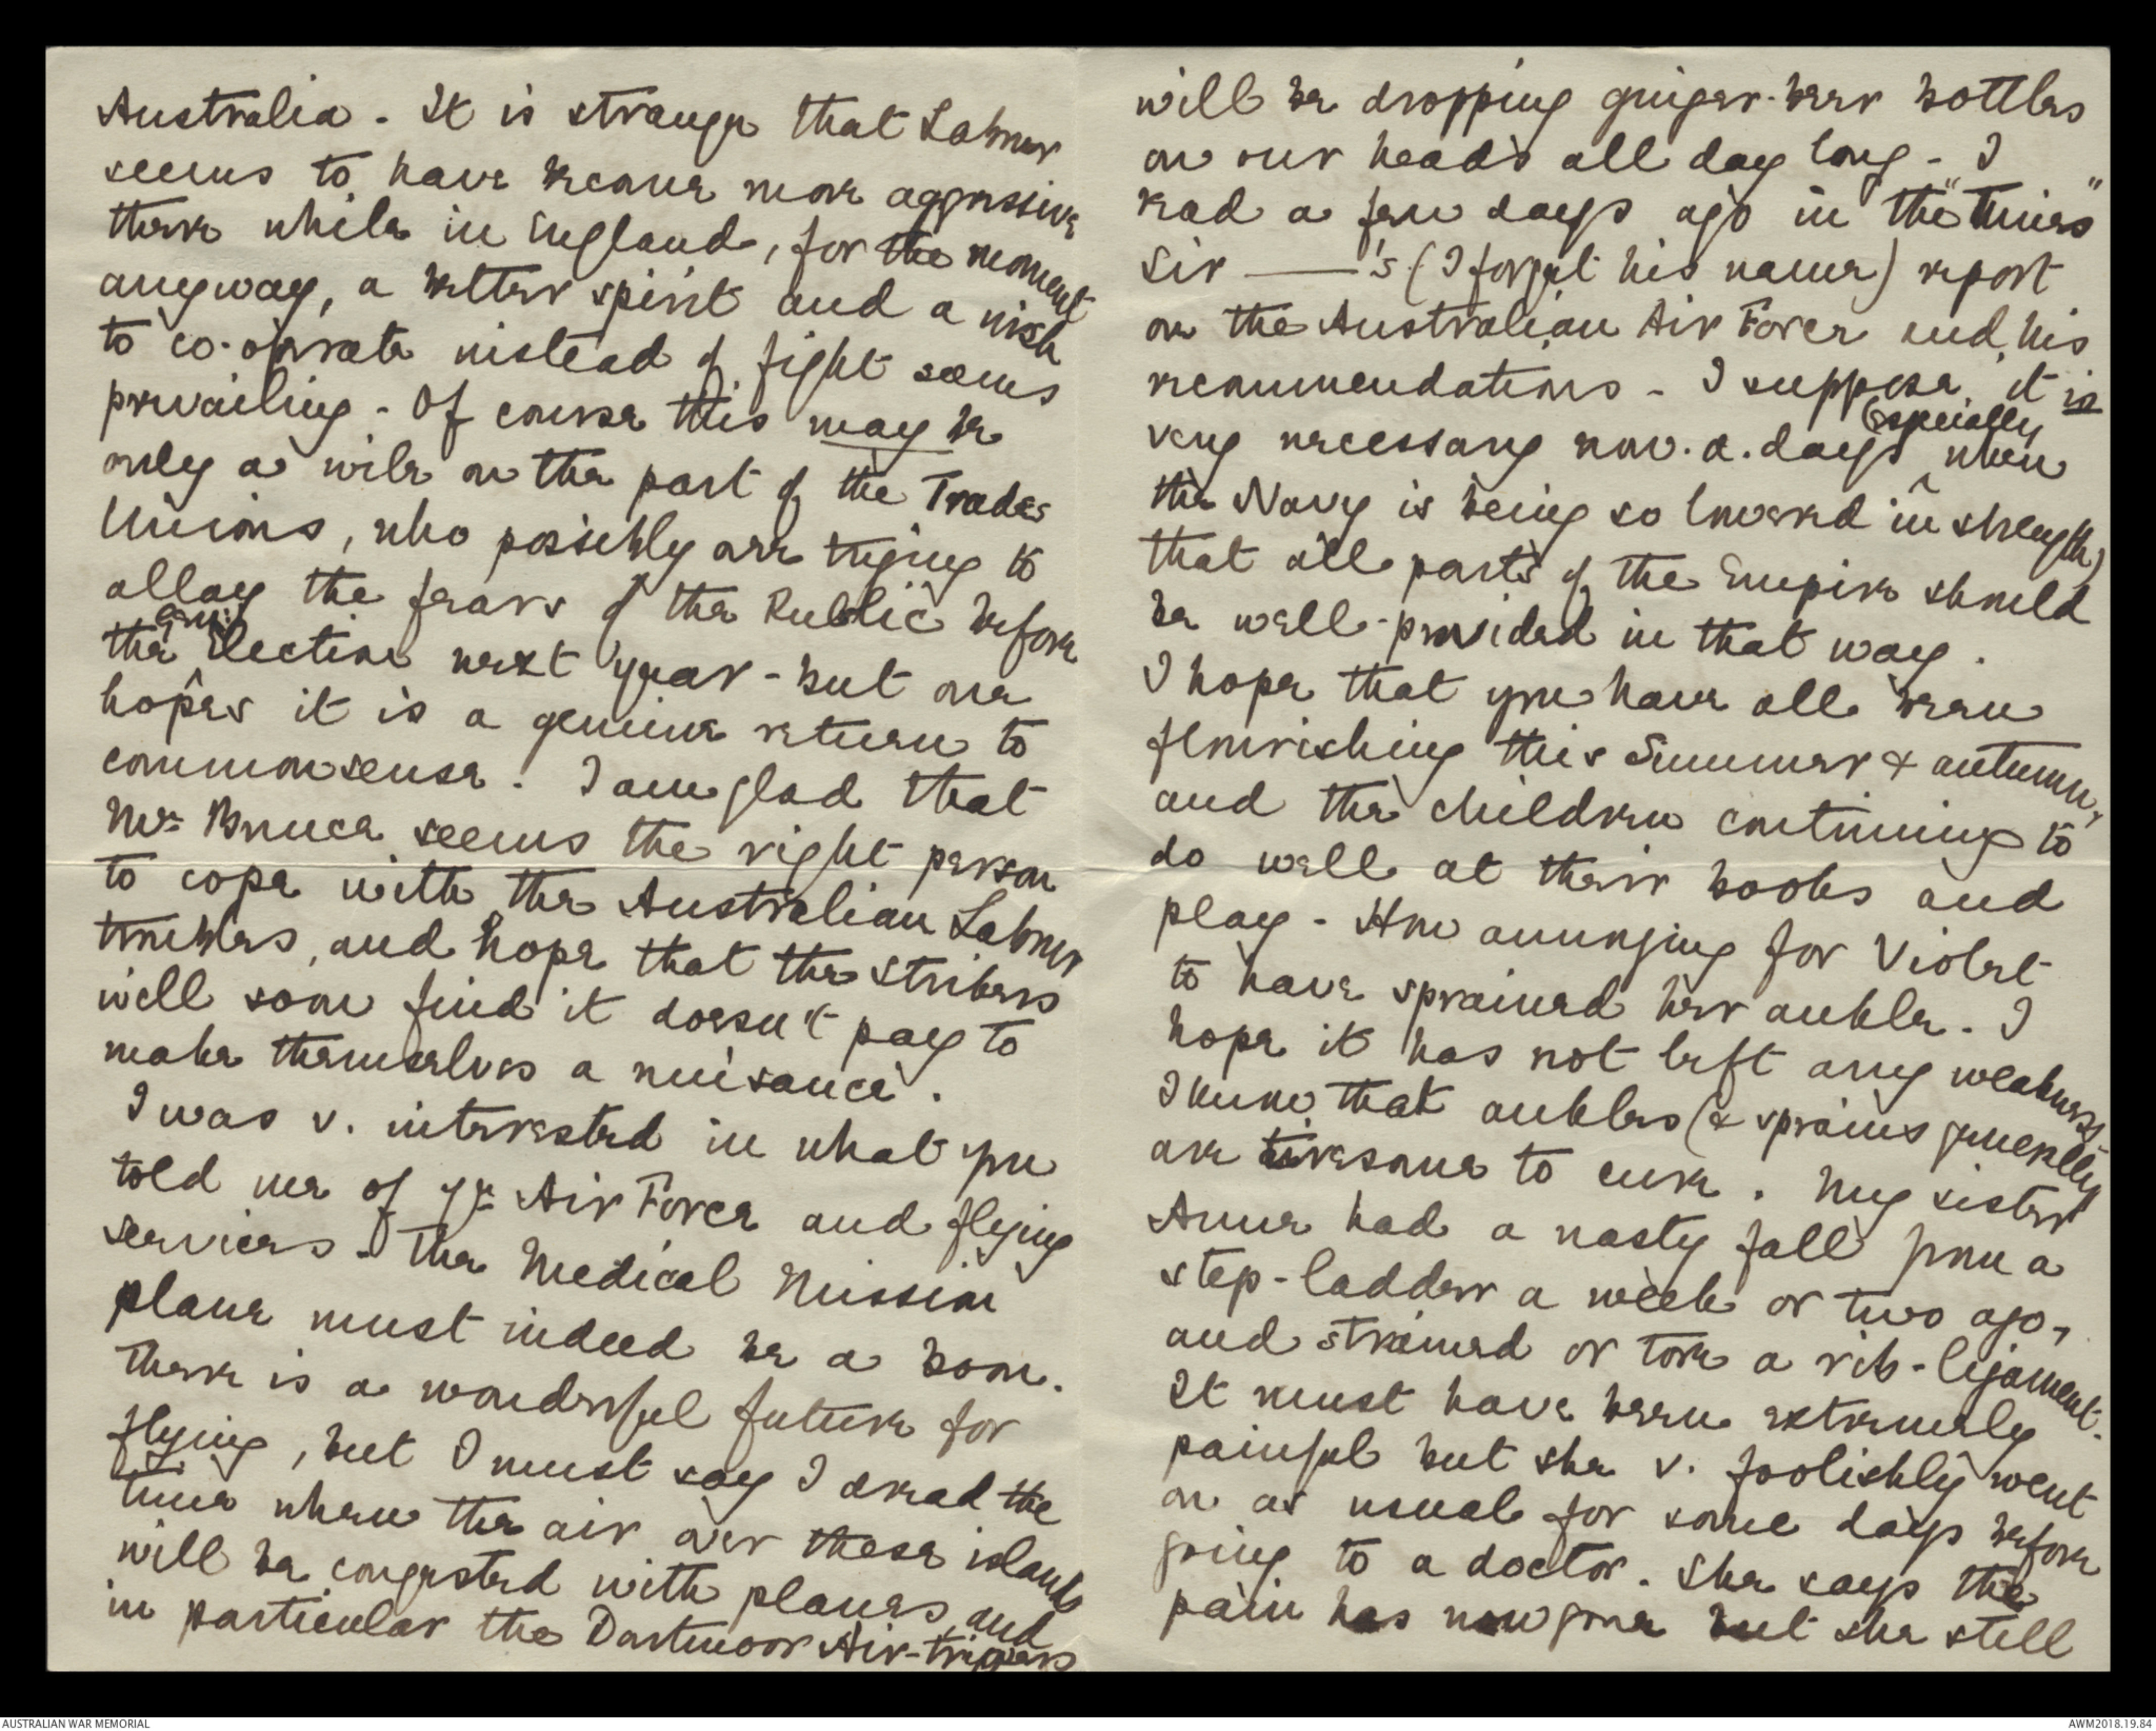 Australia - It is strange that Labour
seems to have become more aggressive
there while in England, for the moment
anyway, a better spirit and a wish
to co-operate instead of fight seems
prevailing - Of course this may be
only a wile on the part of the Trades
Unions, who possibly are trying to
allay the fears of the Public before
the Genl: Election next year - but one
hopes it is a genuine return to
commonsense. I am glad that
Mr. Bruce seems the right person
to cope with the Australian Labour
troubles, and hope that the strikers
will soon find it doesn't pay to
make themselves a nuisance.
I was v. interested in what you
told me of yr. Air Force and flying
services - The Medical Mission
plane must indeed be a boon.
There is a wonderful future for
flying, but I must say I dread the
time when the air over these islands
will be congested with planes, and
in particular the Dartmoor Air-trippers
will be dropping ginger-beer bottles
on our heads all day long - I
read a few days ago in the "Times"
Sir ——'s (I forget his name) report
on the Australian Air Force and his
recommendations - I suppose it is
very necessary now.a.days (especially when
the Navy is being so lowered in strength)
that all parts of the Empire should
be well-provided in that way.
I hope that you have all been
flourishing this Summer & autumn,
and the children continuing to
do well at their books and
play - How annoying for Violet
to have sprained her ankle. I
hope it has not left any weakness
I know that ankles (& sprains generally
are tiresome to cure. My sister
Anne had a nasty fall from a
step-ladder a week or two ago,
and strained or tore a rib-ligament.
It must have been extremely
painful but she v. foolishly went
on as usual for some days before
going to a doctor. She says the
pain has now gone but she still
AUSTRALIAN WAR MEMORIAL
AWM2018.19.84